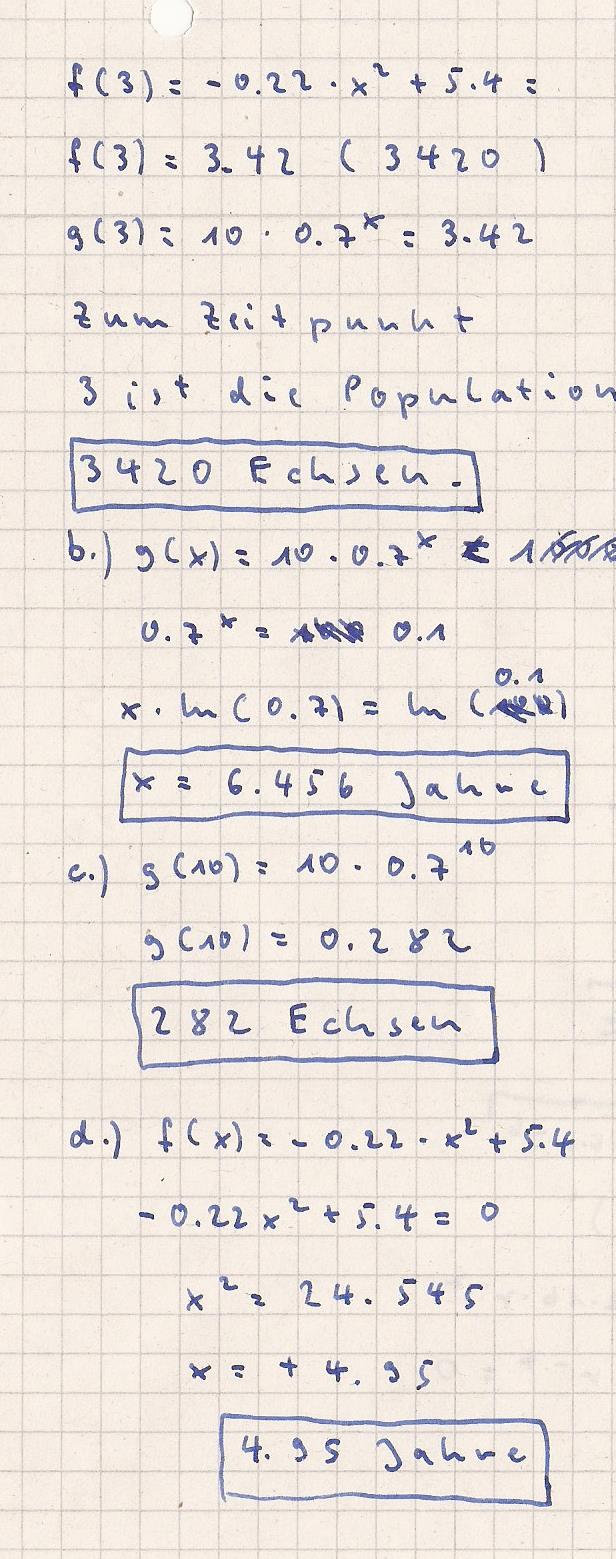 f(3) = -0.22 · x² + 5.4 =
f(3) = 3.42 (3420)
g(3) = 10 · 0.7ˣ = 3.42
Zum Zeitpunkt
3 ist die Population
3420 Echsen.
b.) g(x) = 10 · 0.7ˣ = 1
0.7ˣ = 0.1
x · ln(0.7) = ln(0.1)
x = 6.456 Jahre
c.) g(10) = 10 · 0.7¹⁰
g(10) = 0.282
282 Echsen
d.) f(x) = -0.22 · x² + 5.4
-0.22x² + 5.4 = 0
x² = 24.545
x = + 4.95
4.95 Jahre